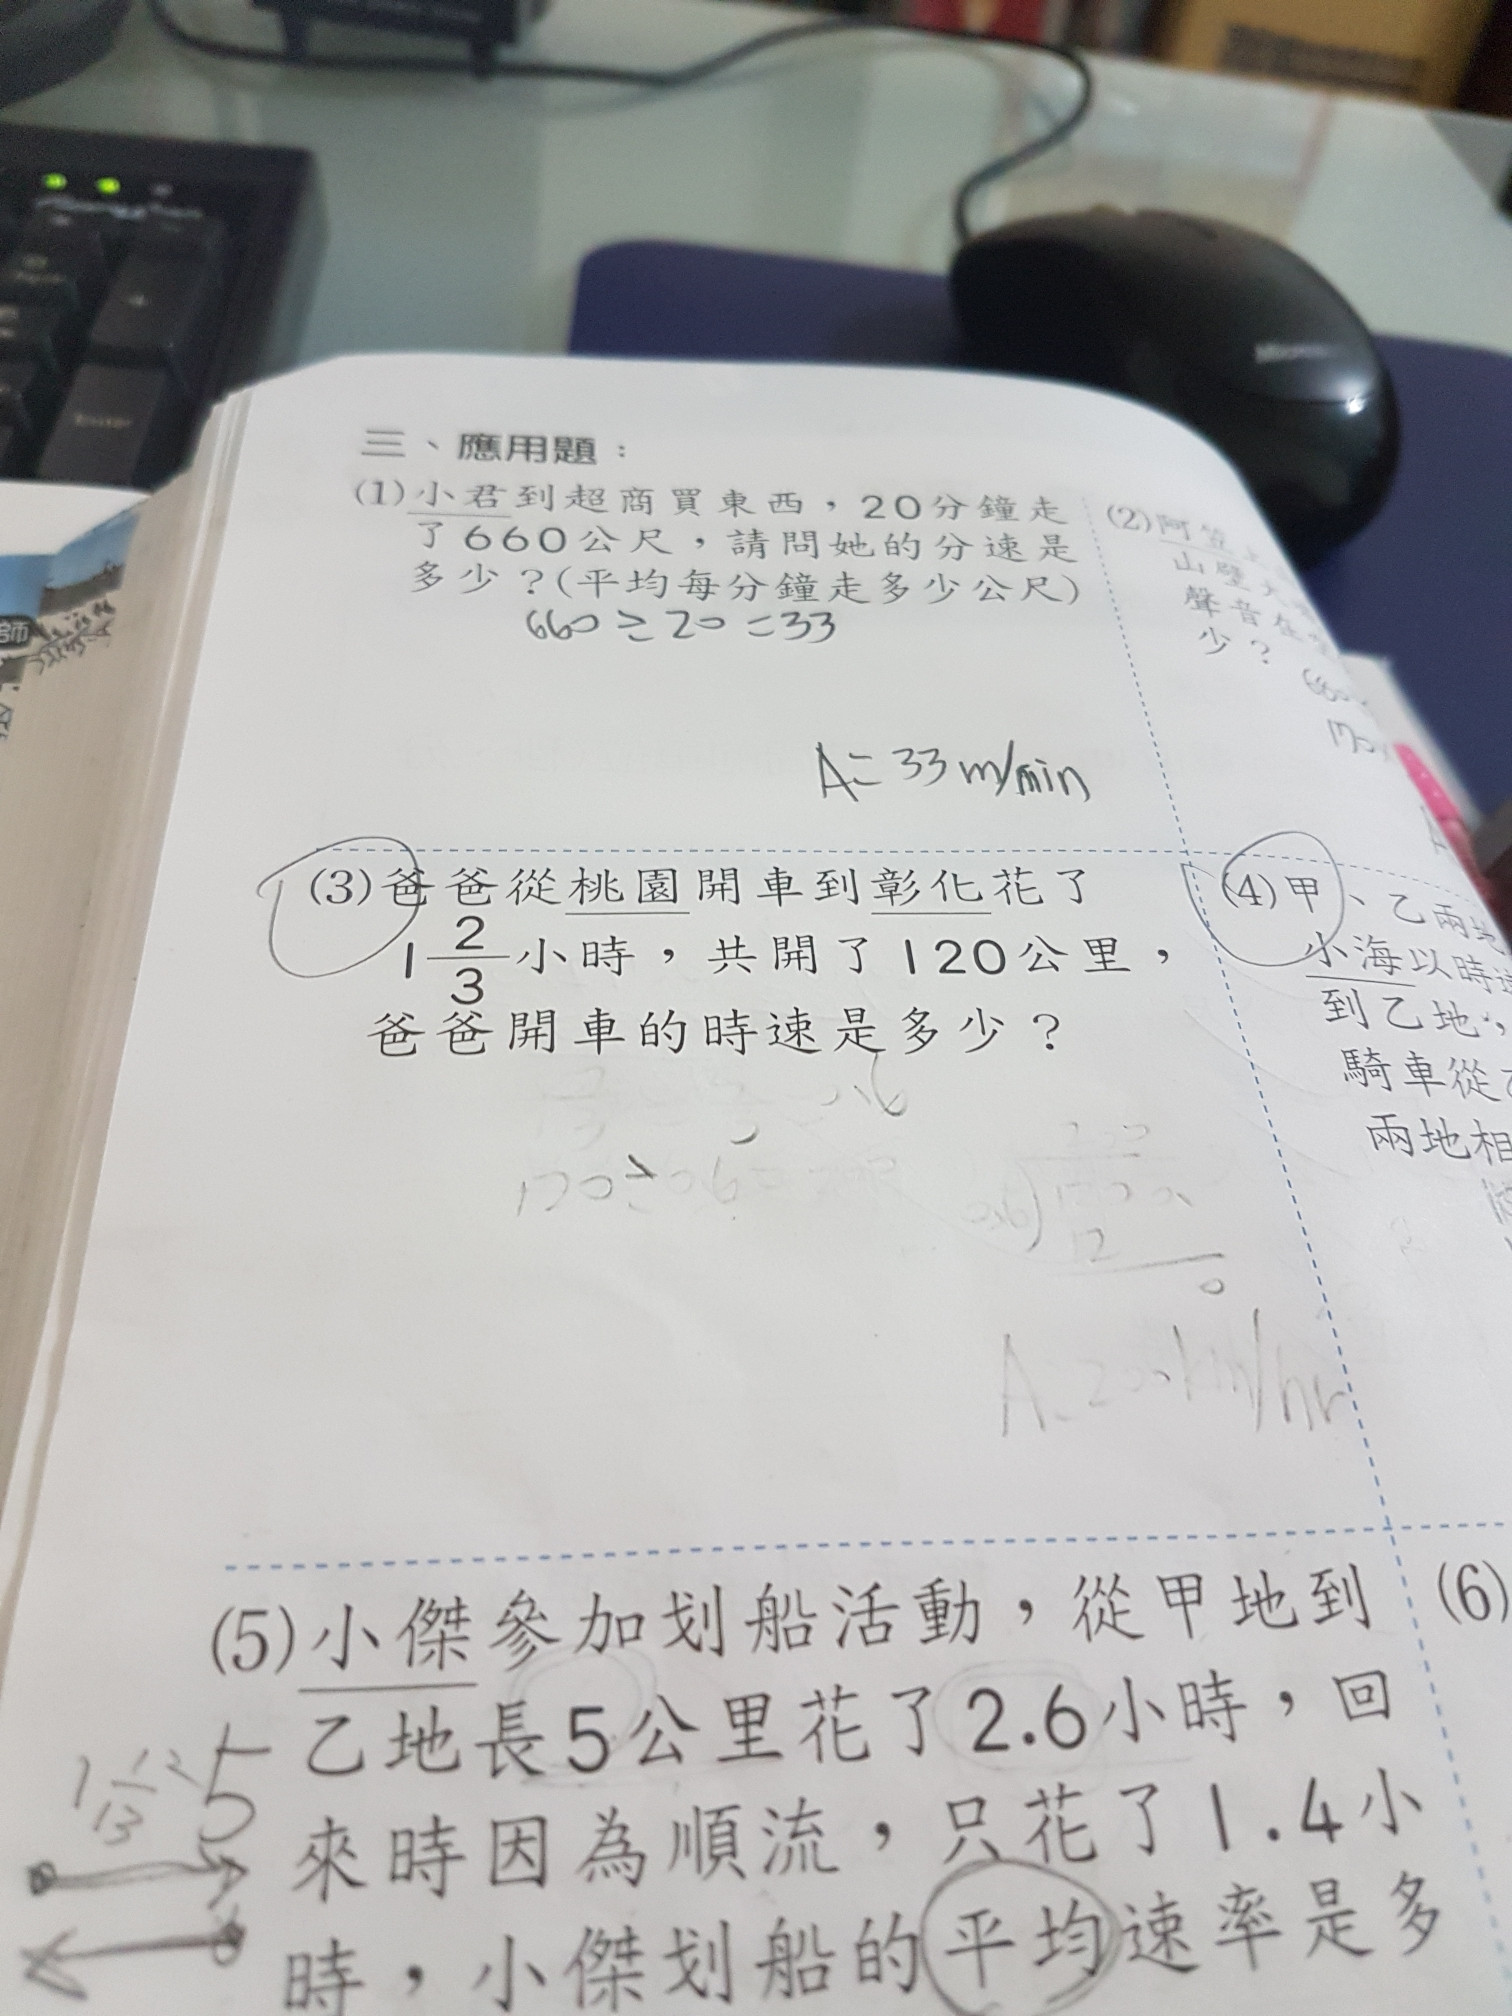 三、應用題：
(1)小君到超商買東西，20分鐘走
了660公尺，請問她的分速是
多少？(平均每分鐘走多少公尺)
660≥20=33
A=33m/min
(2)阿笠
山壁大
聲音在空
少？
660
170
(3)爸爸從桃園開車到彰化花了
1 2/3 小時，共開了120公里，
爸爸開車的時速是多少？
120≥0.6=
0.6
12
0
A=200km/hr
(4)甲、乙兩地
小海以時速
到乙地，
騎車從乙
兩地相
(5)小傑參加划船活動，從甲地到
乙地長5公里花了2.6小時，回
來時因為順流，只花了1.4小
時，小傑划船的平均速率是多
1 12/13
5
(6)
Enter
Microsoft
師